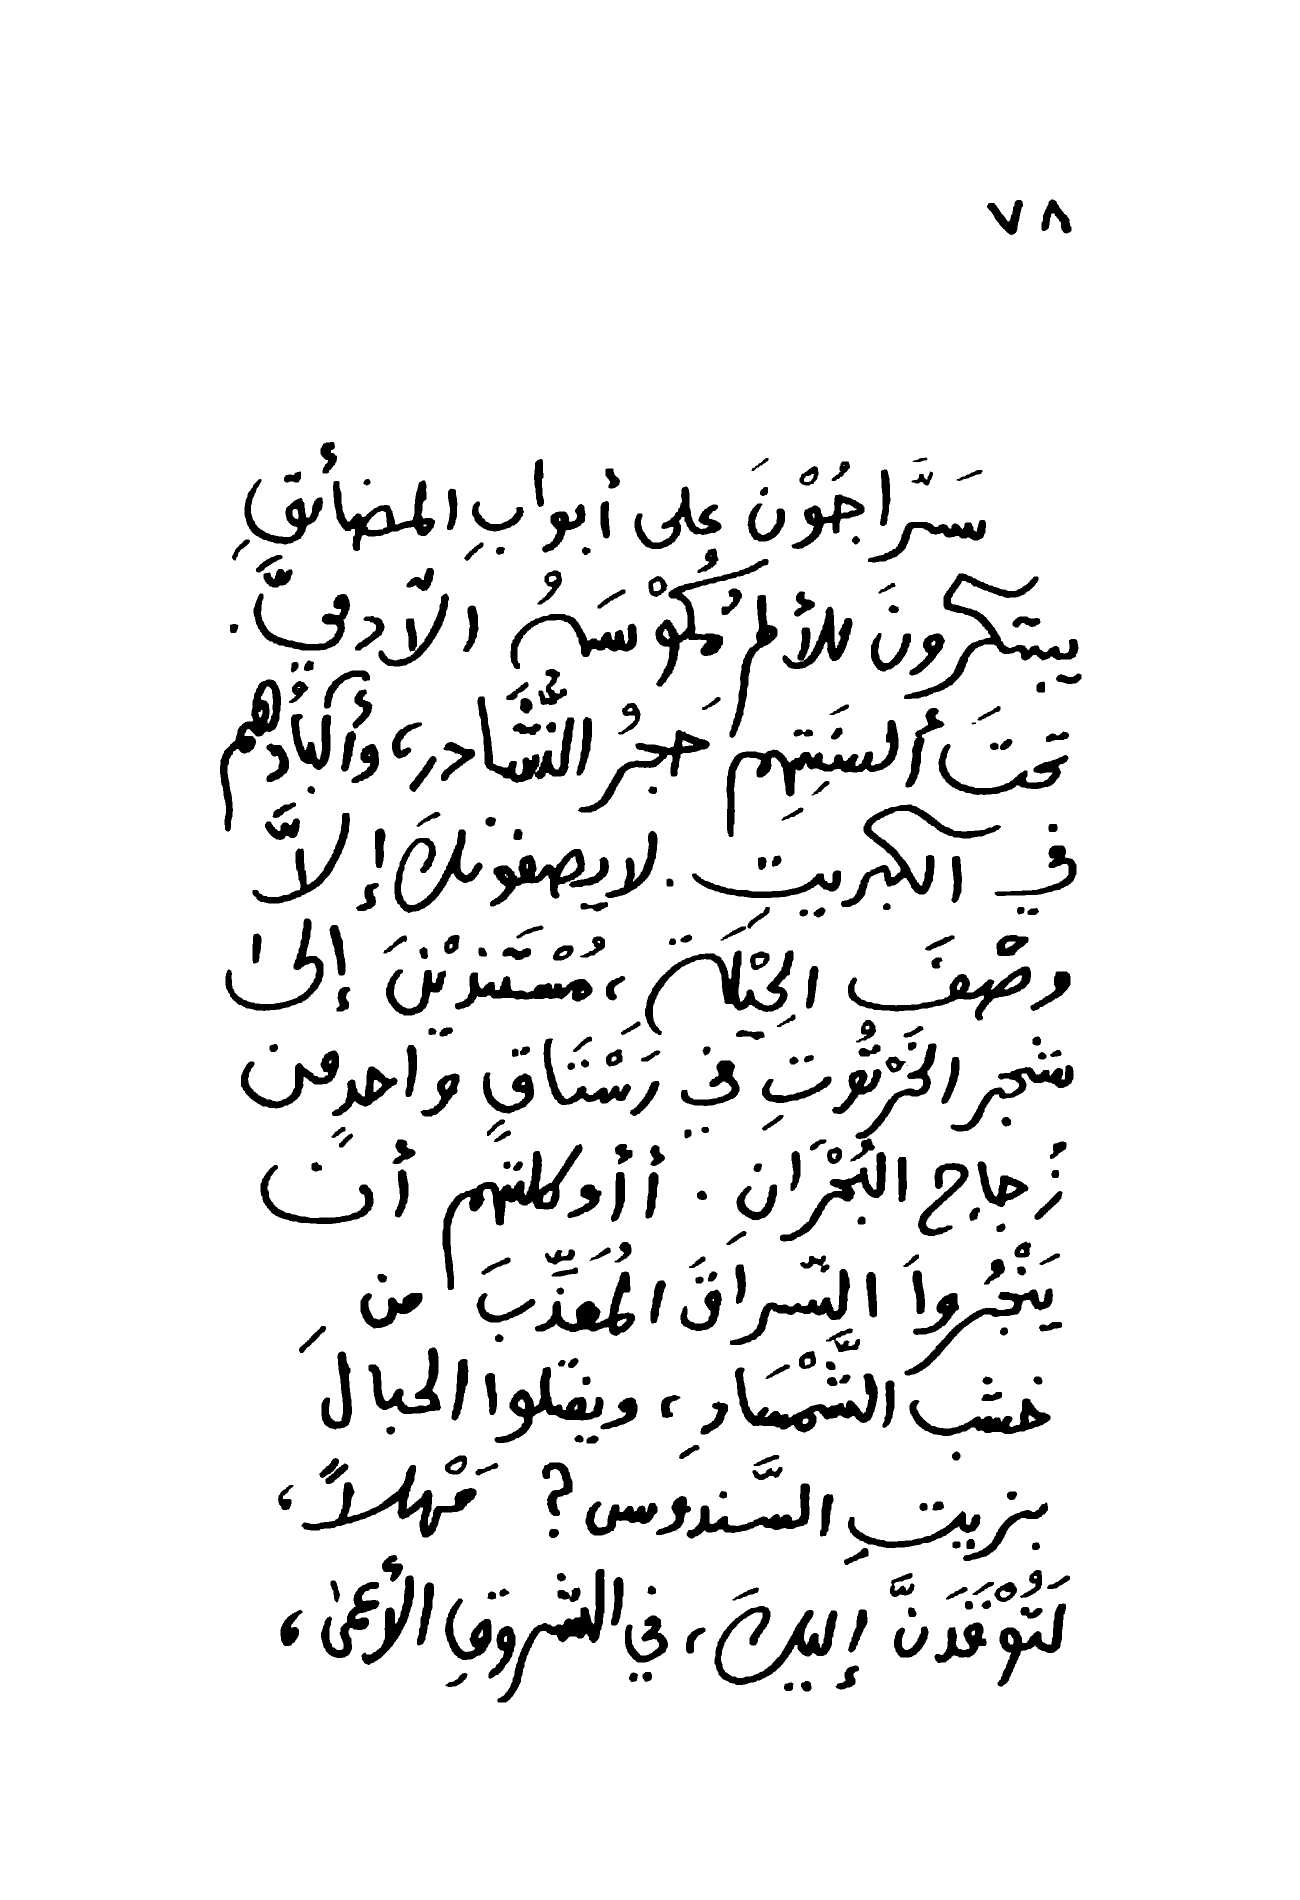 ٧٨
سَرَّاجُوْنَ على أبوابِ المضائقِ
يبتكرونَ للألم مُكُوْسَهُ الآدميَّ.
تحتَ ألسنَتِهِم حَجرُ النُّشَّادر، وأكبادُهم
في الكبريتِ. لا يصفونكَ إلاَّ
وصْفَ الحِيْلَةِ، مُسْتَنِديْنَ إلىٰ
شجر الخَرْتُوتِ في رَسْتَاقٍ واحدٍ من
زُجاج البُحْرَانِ. أأوكلتهم أن
يَنْجُرواَ السّراقَ المُعَذِّبَ من
خشب الشَّمْسَادِ، ويفتلوا الحبالَ
بزيتِ السَّندوس؟ مَهْلاً،
لَتُوْقَدَنَّ إليكَ، في الشروقِ الأعمىٰ،